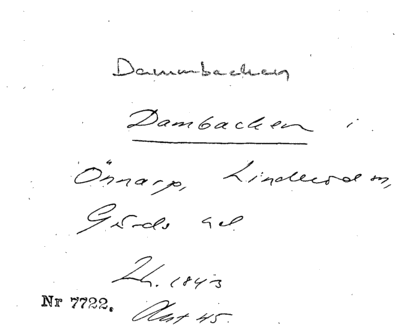 Dammbacken
Dambacken i
Önnarp, Linderöd sn,
Gärds hd.
Lh. 1843
Nr 7722. Akt 45.